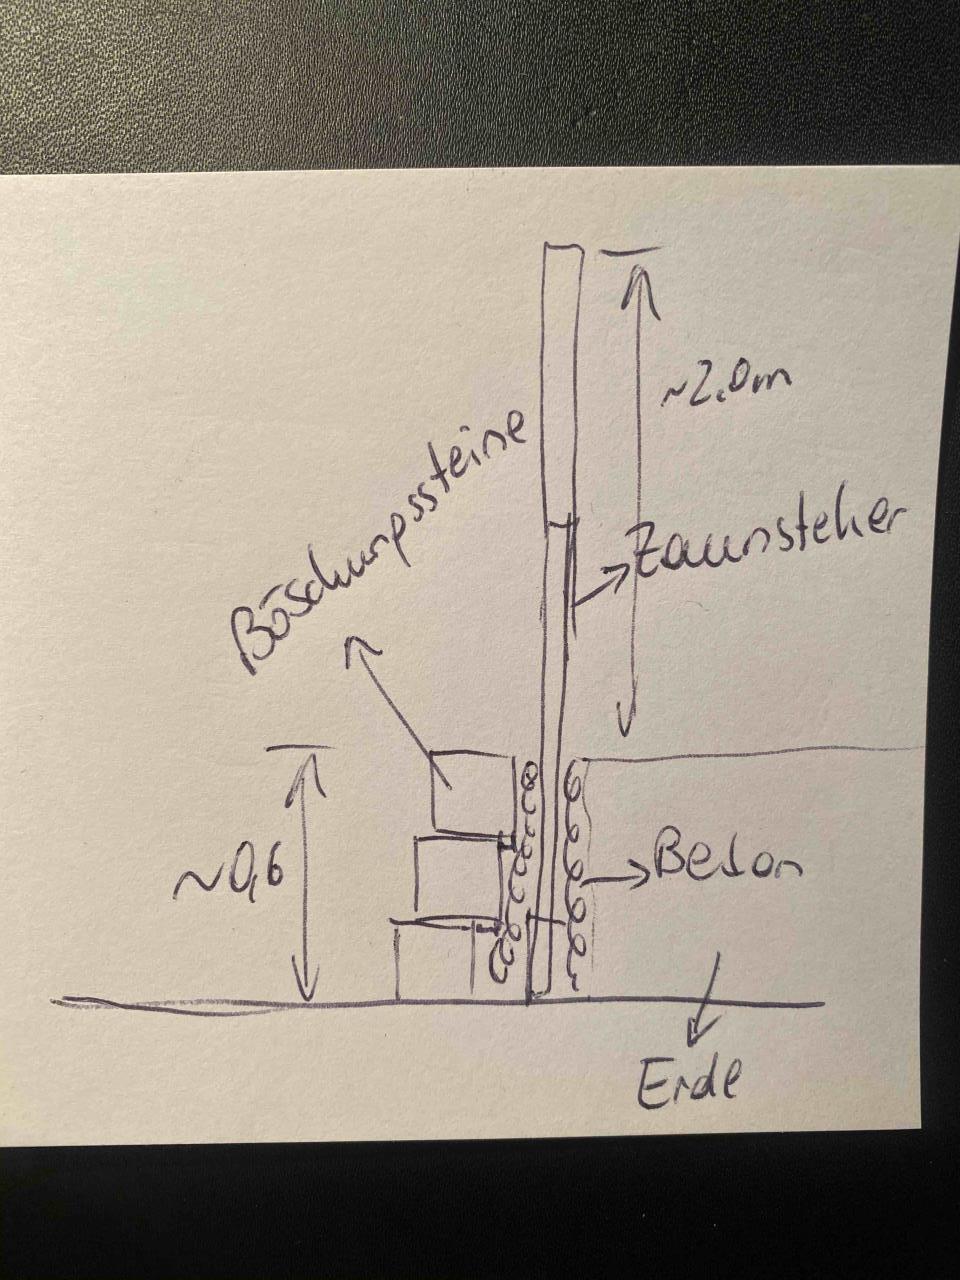 ~2.0m
Böschungssteine
Zaunsteher
~0,6
Beton
Erde